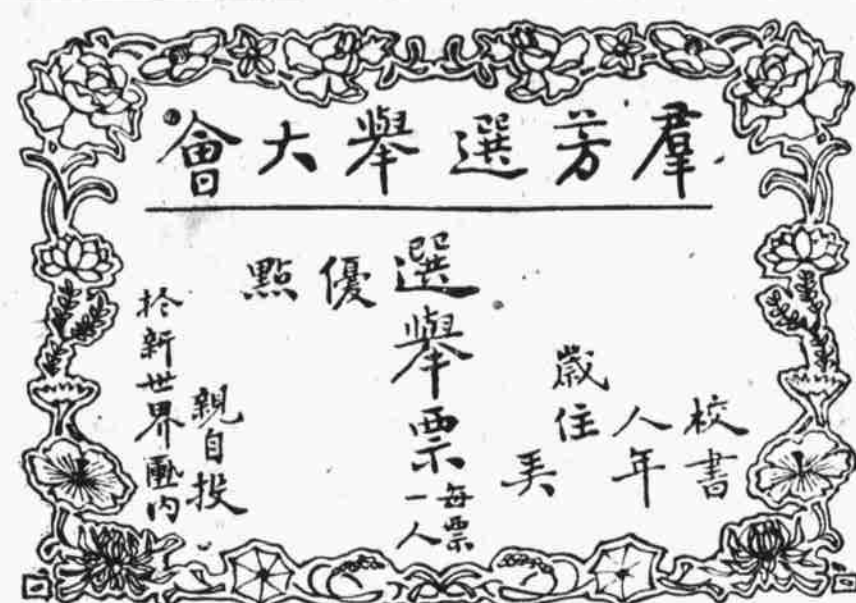 羣芳選舉大會
校書
人年
歲住
選舉票每票一人
優
點
親自投
於新世界匭內